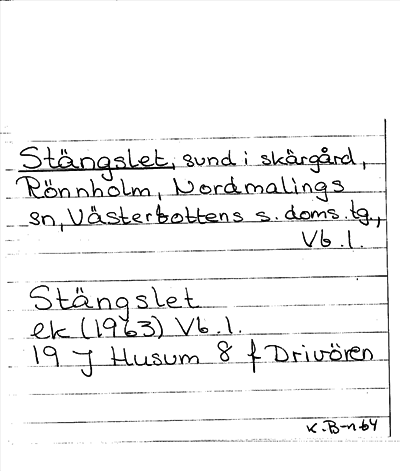 Stängslet, sund i skärgård,
Rönnholm, Nordmalings
sn, Västerbottens s. doms. tg.,
Vb. l.
Stängslet
ek (1963) Vb. l.
19 J Husum 8 f Drivören
K. B-n 64